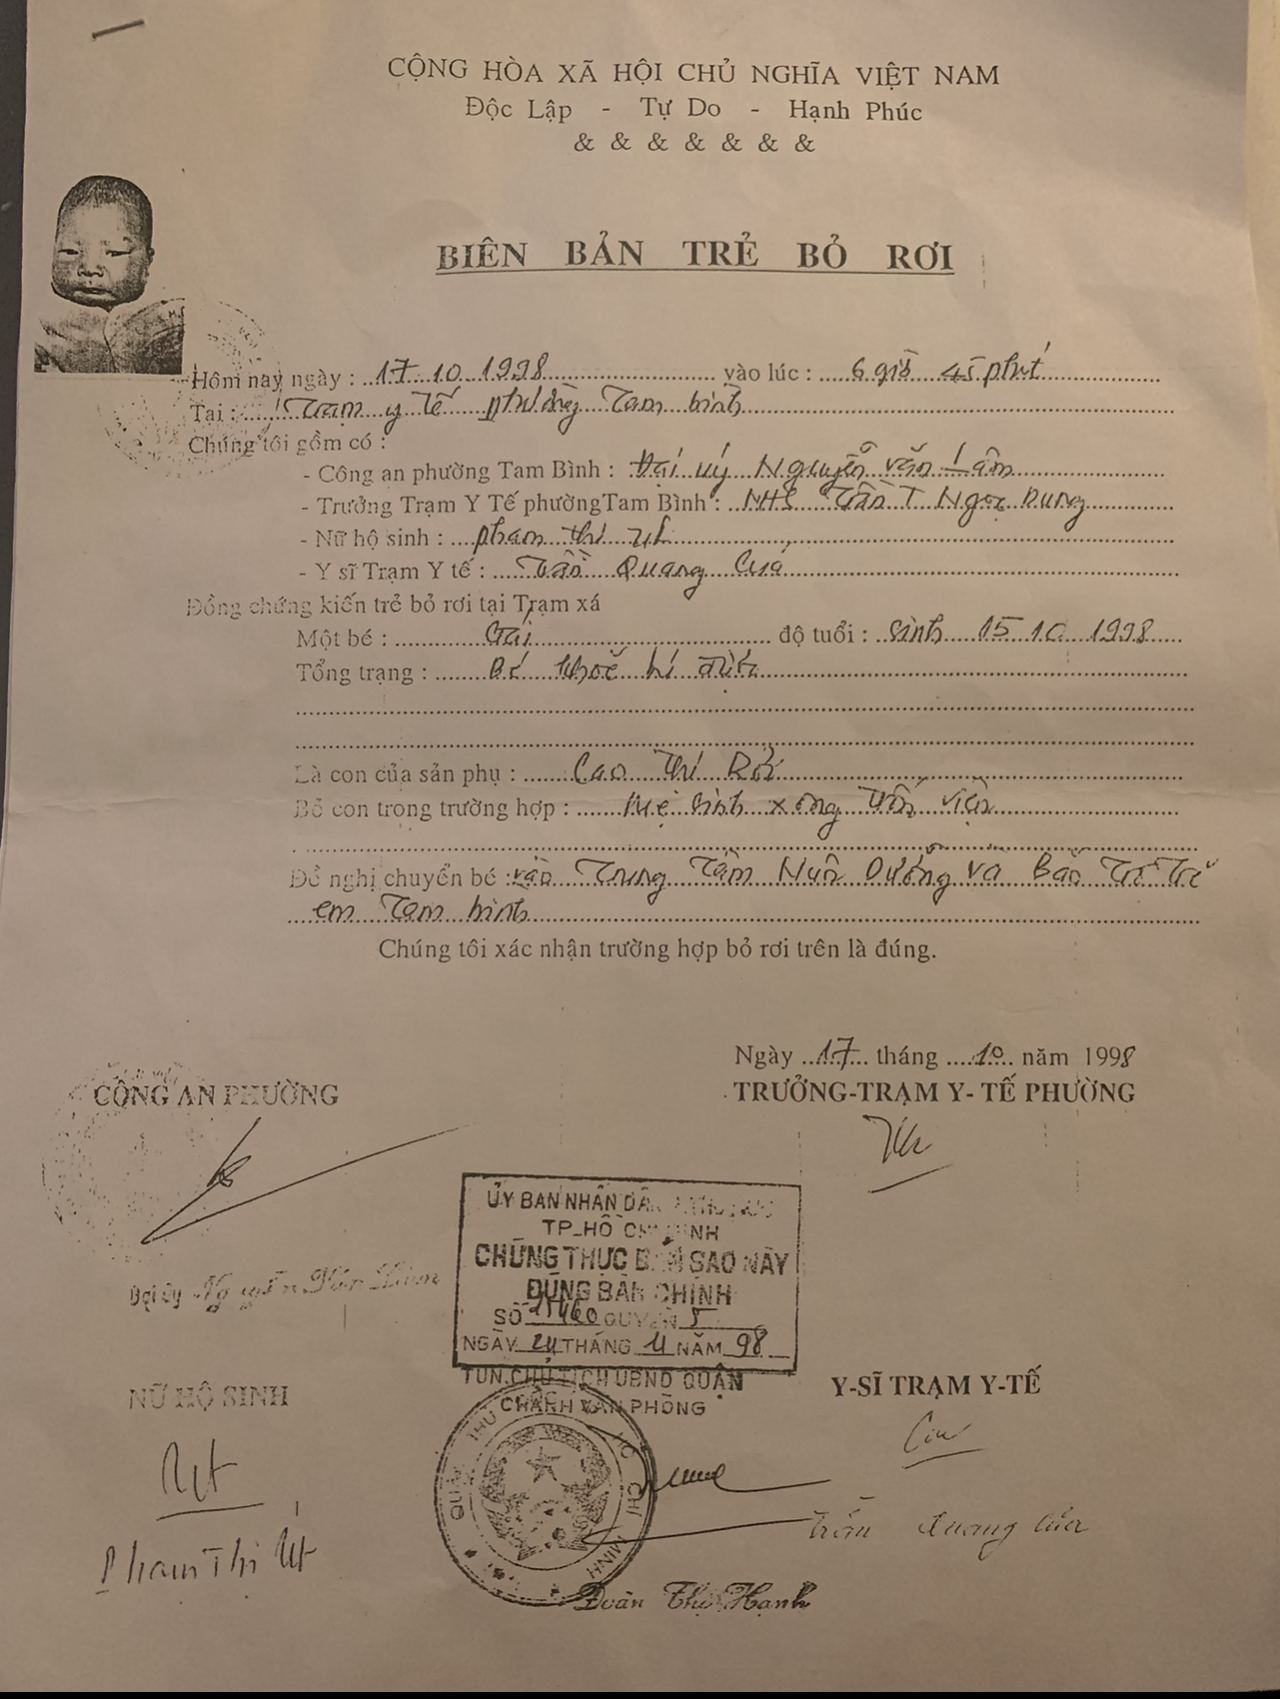 CỘNG HÒA XÃ HỘI CHỦ NGHĨA VIỆT NAM
Độc Lập - Tự Do - Hạnh Phúc
& & & & & & &
BIÊN BẢN TRẺ BỎ RƠI
Hôm nay ngày : 17.10.1998 vào lúc : 6 giờ 45 phút
Tại : Trạm y tế phường Tam bình
Chúng tôi gồm có :
- Công an phường Tam Bình : Đại úy Nguyễn văn Lâm
- Trưởng Trạm Y Tế phường Tam Bình : NHS Trần T Ngọc Dung
- Nữ hộ sinh : phạm thị út
- Y sĩ Trạm Y tế : Trần Quang Cuả
Đồng chứng kiến trẻ bỏ rơi tại Trạm xá
Một bé : Gái độ tuổi : sinh 15 10 1998
Tổng trạng : Bé khoẻ
Là con của sản phụ : Cao thị
Bỏ con trong trường hợp : Mẹ sinh xong trốn viện
Đề nghị chuyển bé : vào Trung Tâm Nuôi Dưỡng và Bảo Trợ Trẻ
em Tam bình
Chúng tôi xác nhận trường hợp bỏ rơi trên là đúng.
Ngày 17 tháng 10 năm 1998
CÔNG AN PHƯỜNG TRƯỞNG-TRẠM Y- TẾ PHƯỜNG
ỦY BAN NHÂN DÂN
TP_HỒ CHÍ MINH
CHỨNG THỰC BẢN SAO NÀY
ĐÚNG BẢN CHÍNH
Đại úy Nguyễn Văn Lâm
SỐ QUYỂN 5
NGÀY 24 THÁNG 11 NĂM 98
TUN.CHỦ TỊCH UBND QUẬN
CHÁNH VĂN PHÒNG
NỮ HỘ SINH Y-SĨ TRẠM Y-TẾ
Út
Trần Quang Cuả
Phạm Thị Út
Đoàn Thị Hạnh